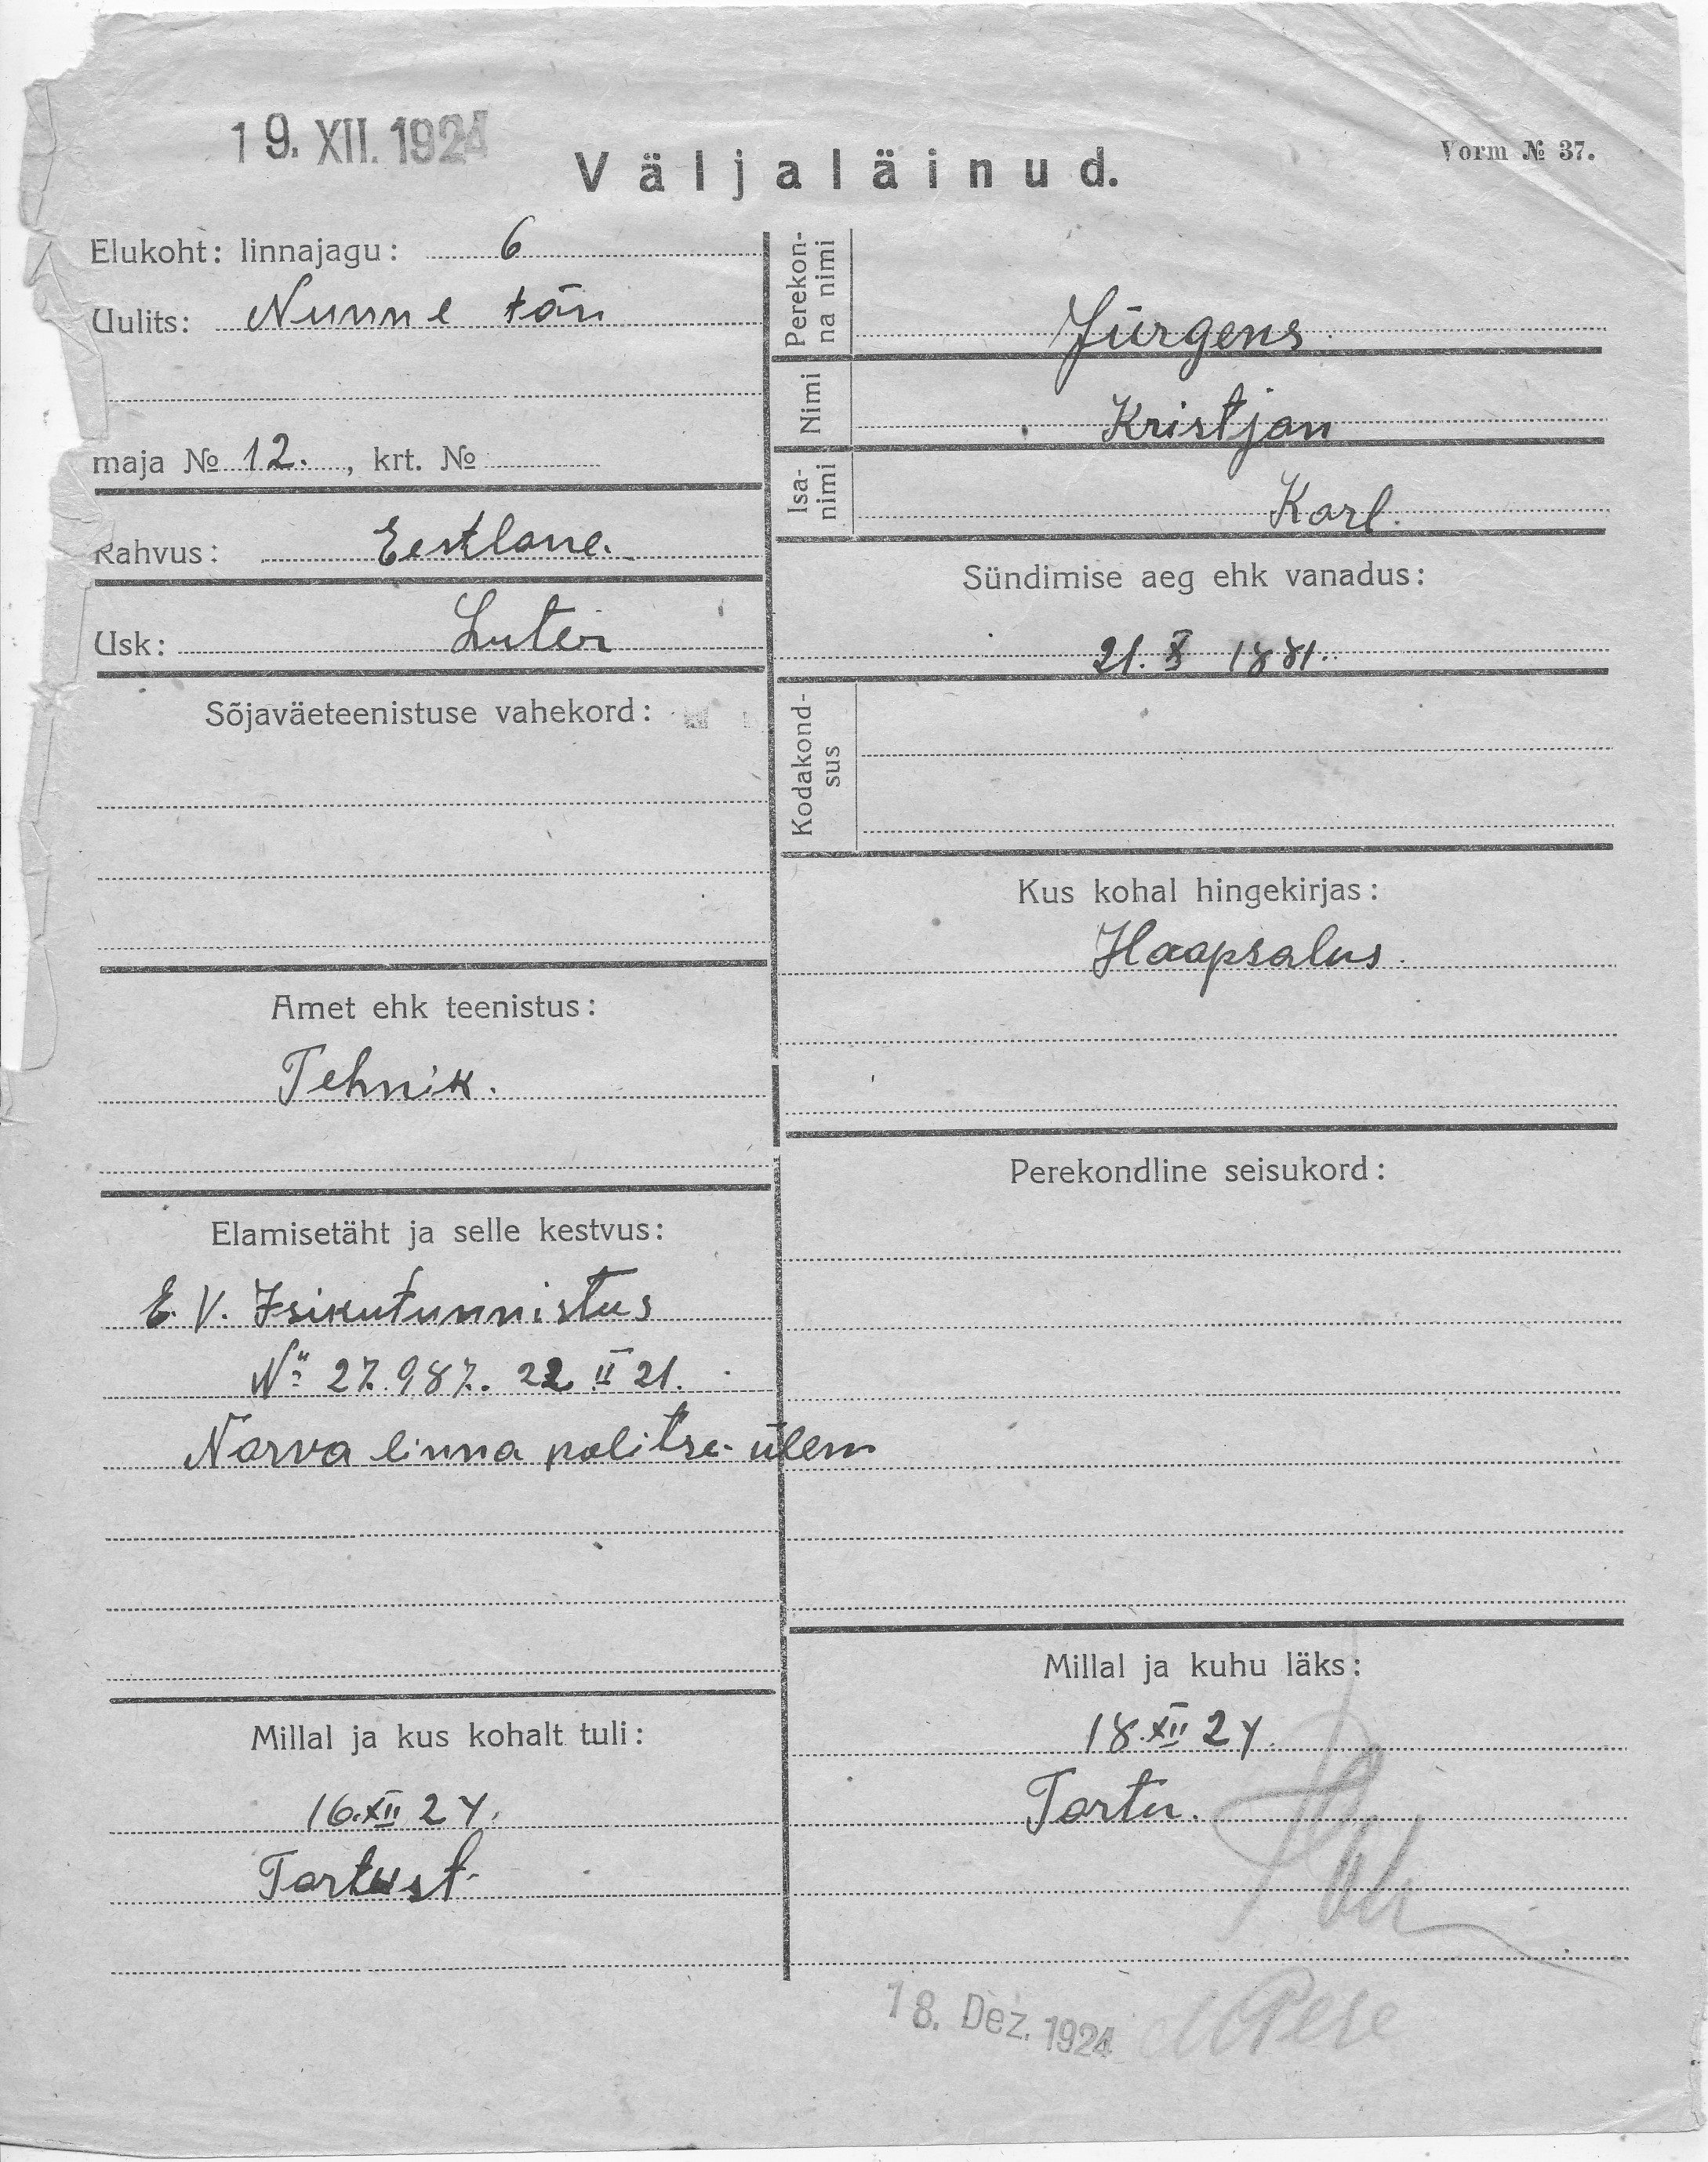 19. XII. 1924
Väljaläinud.
Vorm № 37.
Elukoht: linnajagu: 6
Uulits: Nunne tän
maja № 12. , krt. №
Rahvus: Eestlane.
Usk: Luteri
Sõjaväeteenistuse vahekord:
Amet ehk teenistus:
Tehnik.
Elamisetäht ja selle kestvus:
E. V. Isikutunnistus
№ 27.987. 22 II 21.
Narva linna politse ülem
Millal ja kus kohalt tuli:
16. XII 24.
Tartust
Perekon-
na nimi
Jürgens
Nimi
Kristjan
Isa-
nimi
Karl.
Sündimise aeg ehk vanadus:
21. X 1881.
Kodakond-
sus
Kus kohal hingekirjas:
Haapsalus.
Perekondline seisukord:
Millal ja kuhu läks:
18. XII 24
Tartu.
18. Dez. 1924